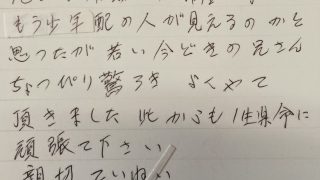 もう少年配の人が見えるのかと
思つたが若い今どきの兄さん
ちょつぴり驚ろき よくやて
頂きました 此からも1生県命に
頑張て下さい
親切ていねい